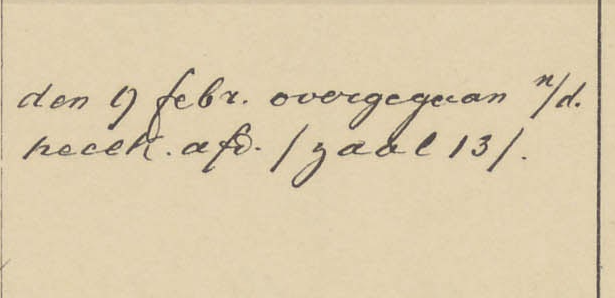 den 17 febr. overgegaan n/d.
heelk. afd. /zaal 13/.